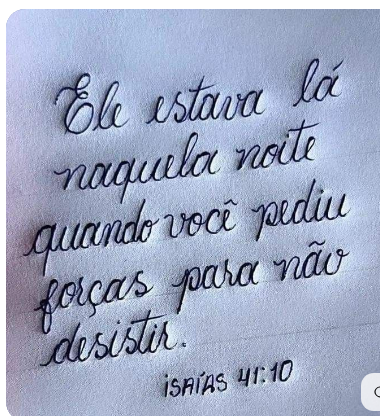 Ele estava lá
naquela noite
quando você pediu
forças para não
desistir.
iSAÍAS 41:10